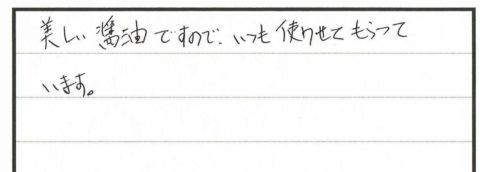 美しい醤油ですので、いつも使わせてもらって
います。